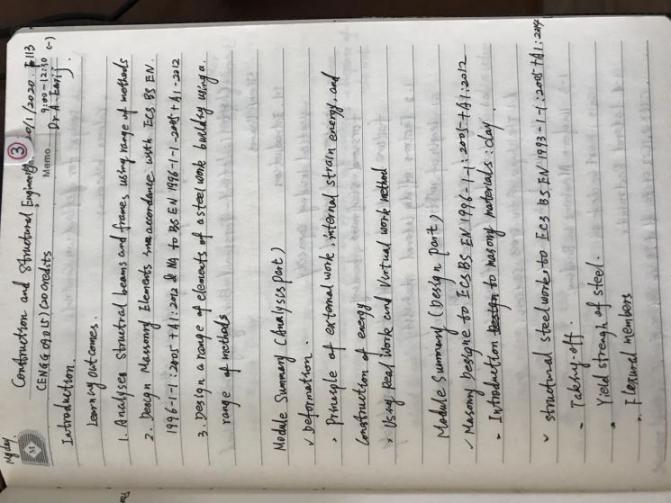 My day
③
Construction and Structural Engineering 20/1/2020. E113
CENGG09015) (20 credits
Memo 9:00-12:30 (-)
Dr. A.
Introduction.
Learning outcomes.
1. Analyses Structral beams and frames, using range of methods
2. Design Massonry Elements in accordance with Ecs BS EN.
1996-1-1:2005 +A1:2012 & NA to BS EN 1996-1-1-2005 + A1-2012
3. Design a range of elements of a steel work building using a
range of methods
Module Summary (Analysis part)
✓ Deformation.
• Principle of external work, internal strain energy and
Construction of energy
• Using Real work and Virtual work method
Module Summary (Design part)
✓ Masonry Designe to Ecs BS EN 1996-1-1:2005 +A1:2012
• Introduction to masony materials: clay.
✓ structural steel work, to Ecs BS EN 1993-1-1:2005 +A1:2014
- Taking-off.
• Yield strengh of steel.
• Flexural members